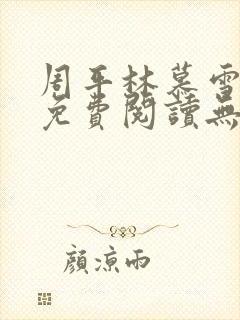 周平林慕雪
免費閱讀無
顏涼雨